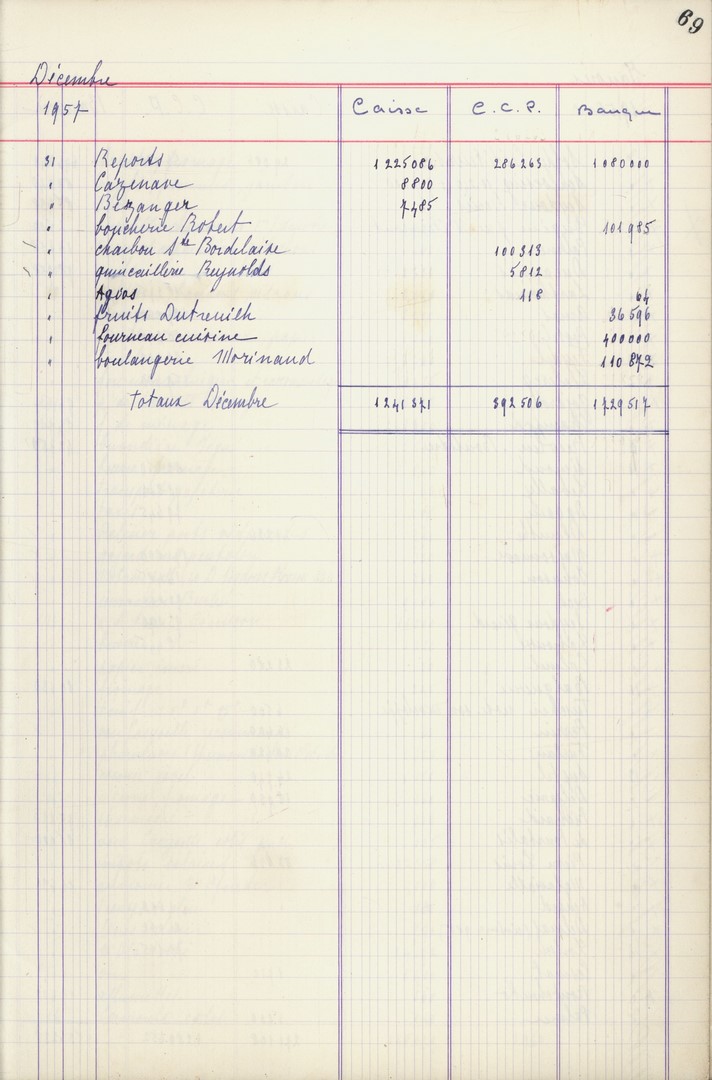 69
Décembre
1957 Caisse C.C.P. Banque
31 Reports 1225086 286263 1080000
" Cazenave 8800
" Bézanger 7485
" boucherie Robert 101985
" charbon Sté Bordelaise 100313
" quincaillerie Reynolds 5812
" Agios 118 64
" fruits Dutreuilh 36596
" fourneau cuisine 400000
" boulangerie Morinaud 110872
totaux Décembre 1241371 392506 1729517